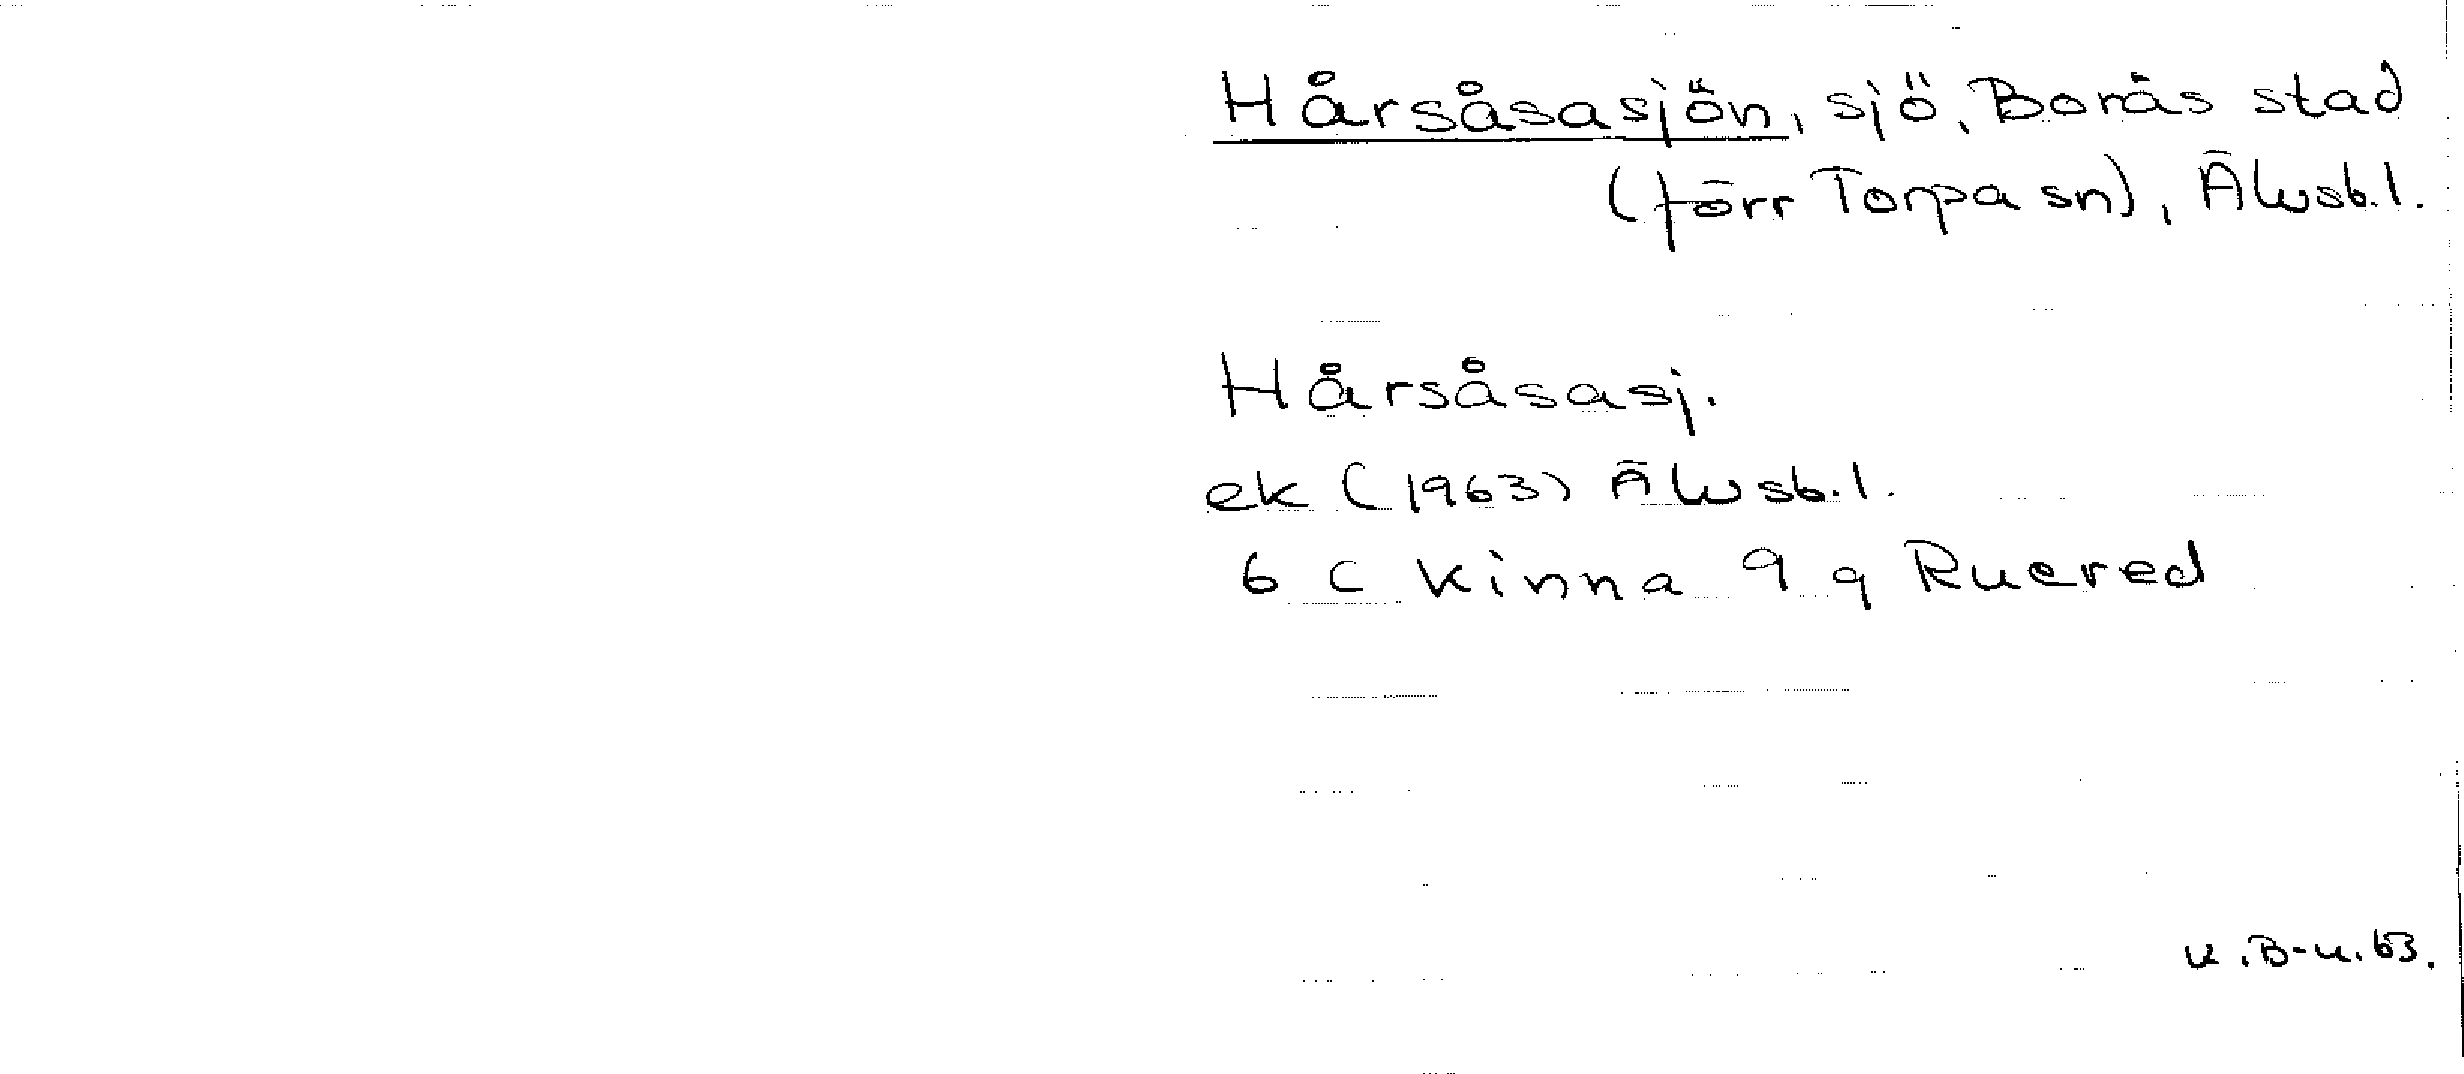 Hårsåsasjön, sjö, Borås stad
(förr Torpa sn), Älvsb.l.
Hårsåsasj.
ek (1963) Älvsb.l.
6 C Kinna 9 g Ruered
K.B-u.63.